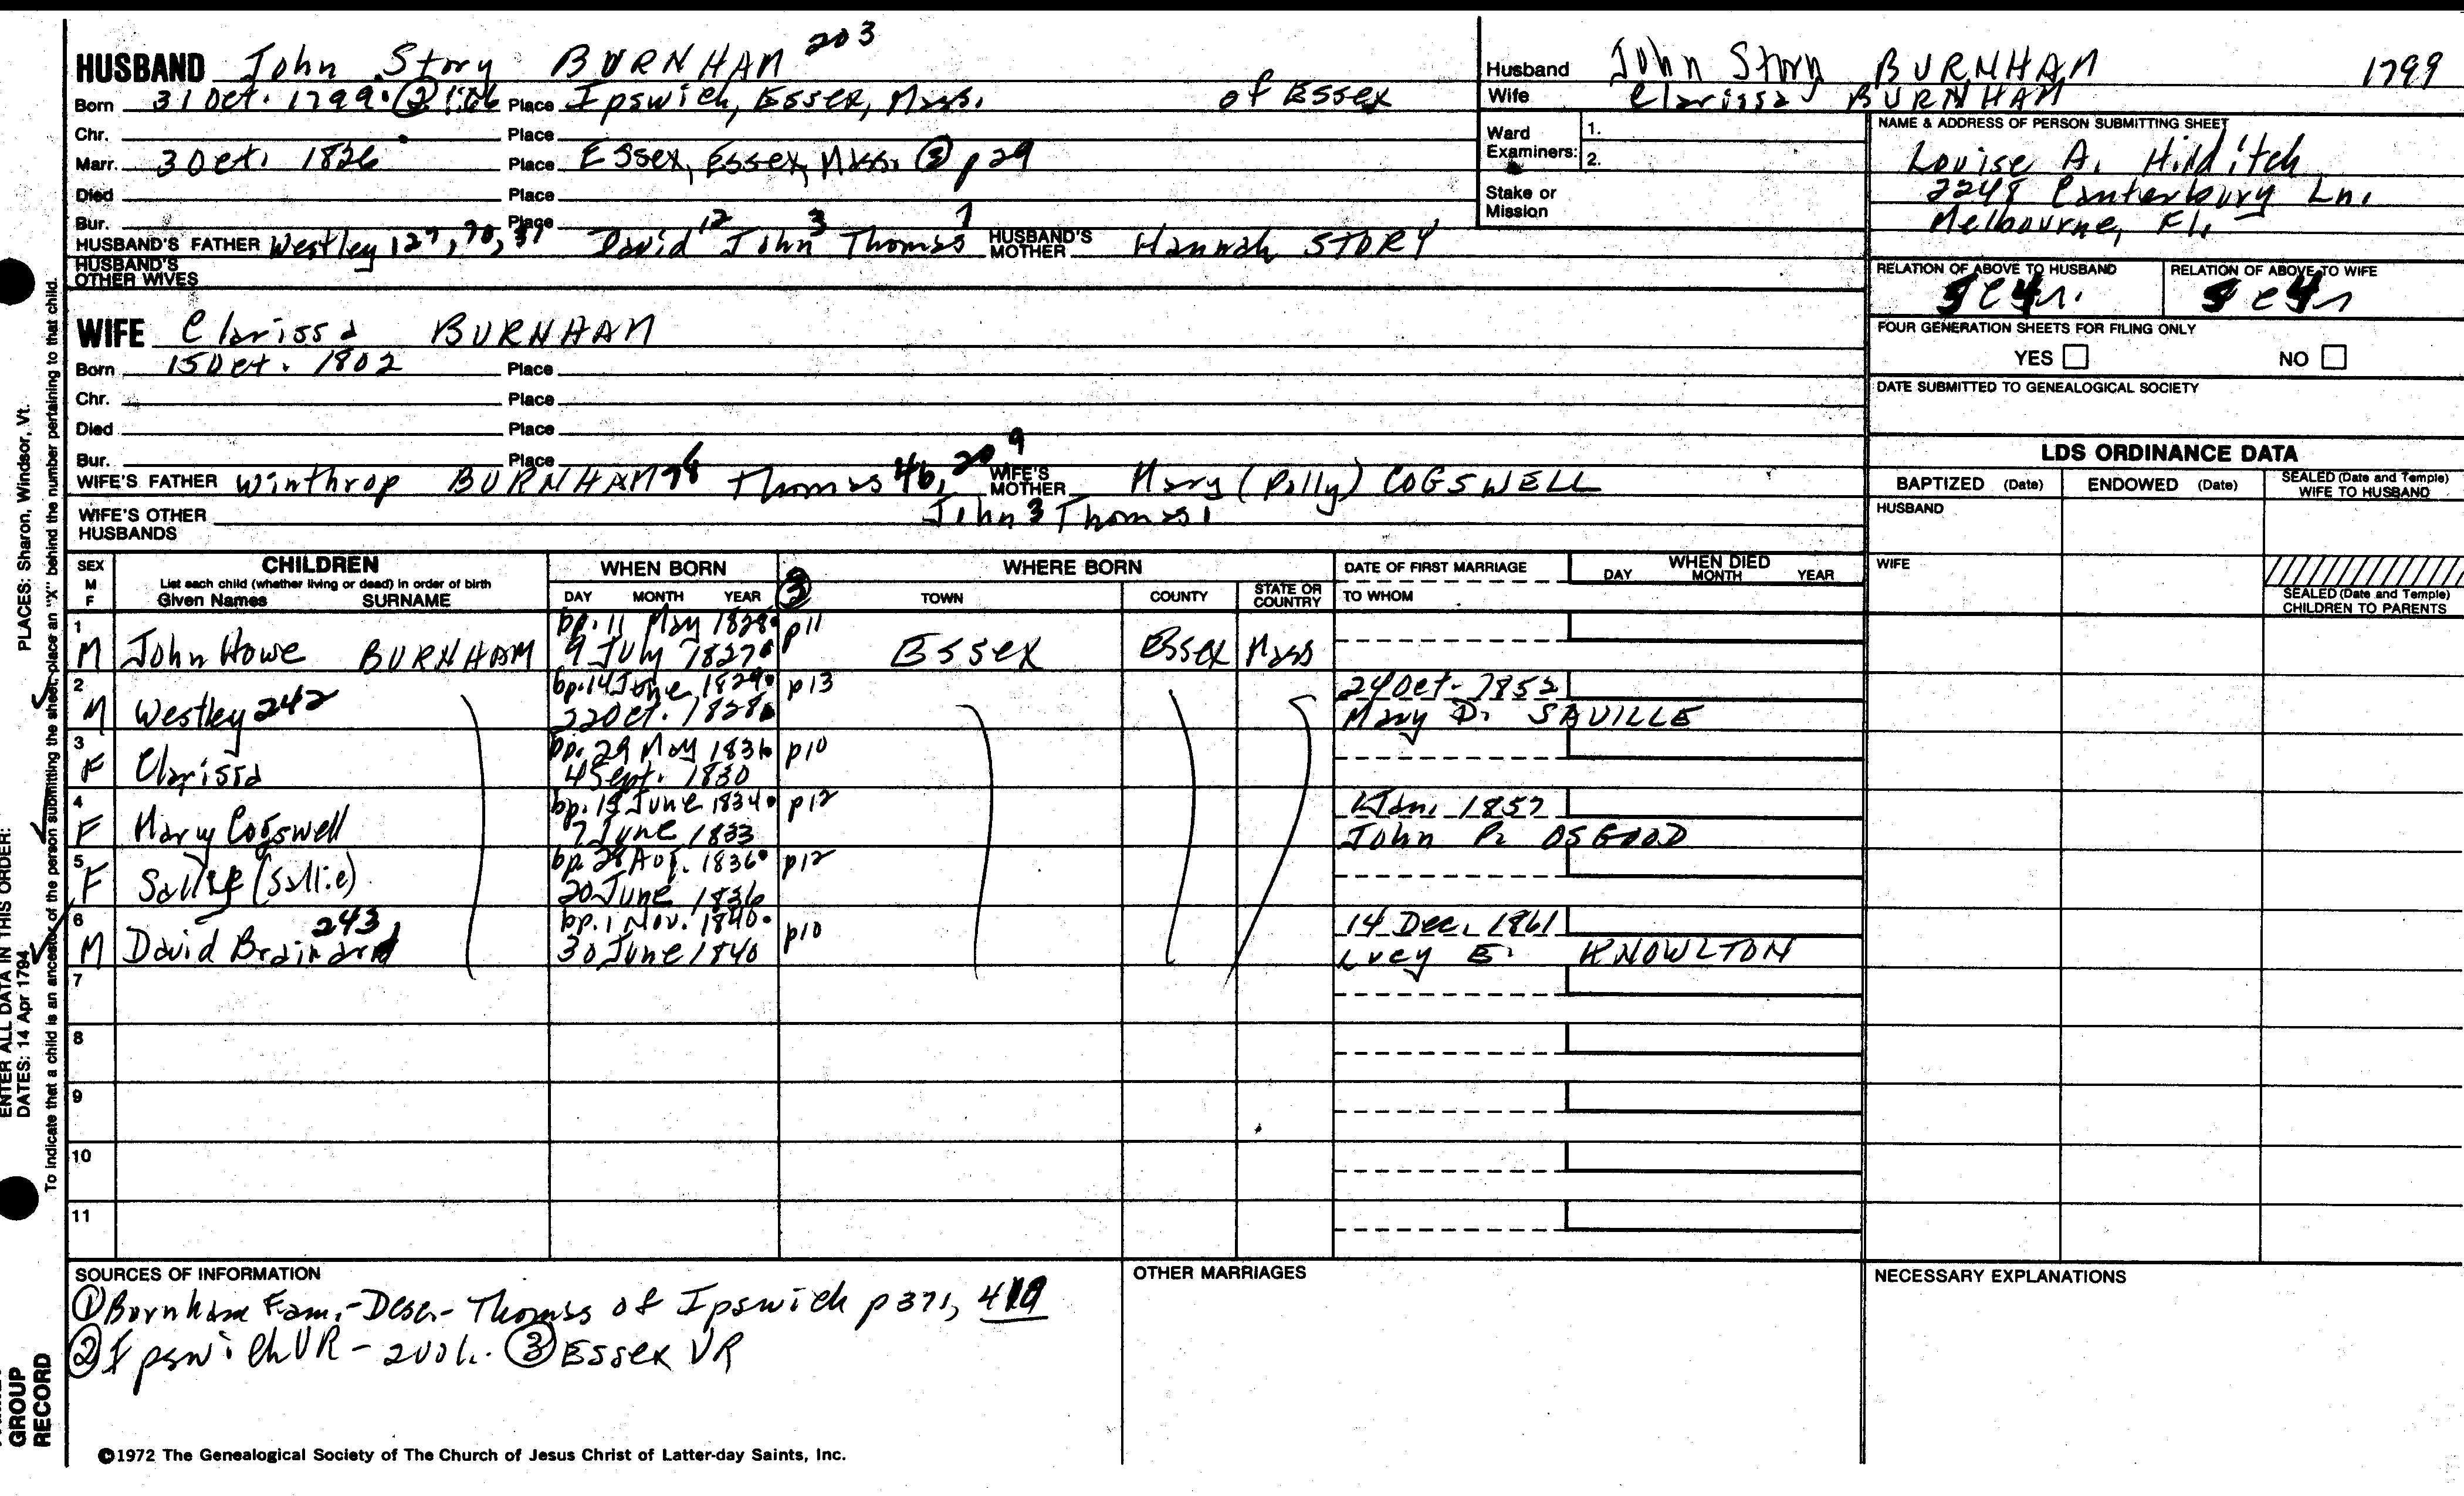 HUSBAND John Story BURNHAM 203
Born 31 Oct. 1799 ② Place Ipswich, Essex, Mass. of Essex
Chr. Place
Marr. 3 Oct. 1826 Place Essex, Essex, Mass. ③ p 29
Died Place
Bur. Place
HUSBAND'S FATHER Westley 127, 70, 31 David 12 John 3 Thomas 1 HUSBAND'S MOTHER Hannah STORY
HUSBAND'S OTHER WIVES
WIFE Clarissa BURNHAM
Born 15 Oct. 1802 Place
Chr. Place
Died Place
Bur. Place
WIFE'S FATHER Winthrop BURNHAM 98 Thomas 46, 20 9 WIFE'S MOTHER Mary (Polly) COGSWELL
John 3 Thomas 1
WIFE'S OTHER HUSBANDS
Husband John Story BURNHAM 1799
Wife Clarissa BURNHAM
Ward Examiners: 1.
2.
Stake or Mission
NAME & ADDRESS OF PERSON SUBMITTING SHEET
Louise A. Hilditch
2248 Canterbury Ln.
Melbourne, Fl.
RELATION OF ABOVE TO HUSBAND RELATION OF ABOVE TO WIFE
FOUR GENERATION SHEETS FOR FILING ONLY
YES NO
DATE SUBMITTED TO GENEALOGICAL SOCIETY
LDS ORDINANCE DATA
BAPTIZED (Date) ENDOWED (Date) SEALED (Date and Temple) WIFE TO HUSBAND
HUSBAND
WIFE
SEALED (Date and Temple) CHILDREN TO PARENTS
SEX M F CHILDREN WHEN BORN ③ WHERE BORN DATE OF FIRST MARRIAGE WHEN DIED
List each child (whether living or dead) in order of birth
Given Names SURNAME DAY MONTH YEAR TOWN COUNTY STATE OR COUNTRY TO WHOM DAY MONTH YEAR
1 bp. 11 May 1828 p11
M John Howe BURNHAM 9 July 1827 Essex Essex Mass
2 bp. 14 June 1829 p13 24 Oct. 1852
M Westley 242 22 Oct. 1828 Mary D. SAVILLE
3 bp. 29 May 1831 p10
F Clarissa 4 Sept. 1830
4 bp. 15 June 1834 p12 Jan. 1857
F Mary Cogswell 7 June 1833 John P. OSGOOD
5 bp. 28 Aug. 1836 p12
F (Sallie) 20 June 1836
6 bp. 1 Nov. 1840 p10 14 Dec. 1861
M David Brainard 243 30 June 1840 Lucy E. KNOWLTON
7
8
9
10
11
SOURCES OF INFORMATION
① Burnham Fam.-Desc.- Thomas of Ipswich p 371, 419
② Ipswich VR - ③ Essex VR
OTHER MARRIAGES
NECESSARY EXPLANATIONS
©1972 The Genealogical Society of The Church of Jesus Christ of Latter-day Saints, Inc.
GROUP
RECORD
ENTER ALL DATA IN THIS ORDER:
DATES: 14 Apr 1794
PLACES: Sharon, Windsor, Vt.
To indicate that a child is an ancestor of the person submitting the sheet, place an "X" behind the number pertaining to that child.